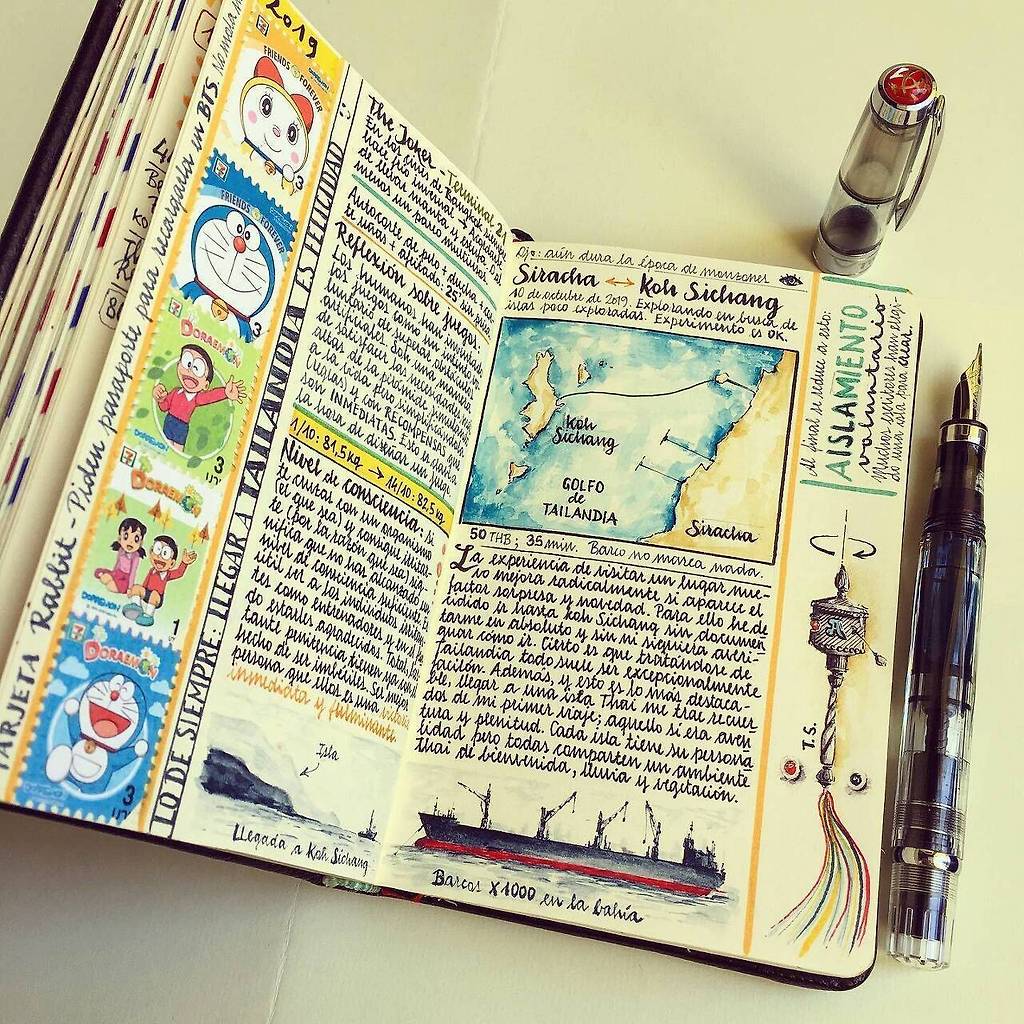 2019
TARJETA Rabbit - Piden pasaporte para recargarla en BTS. No mola
FRIENDS FOREVER
3
FRIENDS FOREVER
3
DORAEMON
DORAEMON
3
DORAEMON
DORAEMON
1
DORAEMON
3
LO DE SIEMPRE: LLEGAR A TAILANDIA ES FELICIDAD :)
The Joker - Terminal 21
En los cines de Bangkok siempre
hace frío
menos un paño
Autocorte de pelo + ducha +
uñas + afeitado: 25
Reflexión sobre juegos:
Los humanos han inventado
los juegos como un intento
artificiales. Son una simulación
de la vida pero simplificada
(reglas) y con RECOMPENSAS que
son INMEDIATAS. Esto es guay a
la hora de diseñar un juego.
1/10: 81,5 kg → 14/10: 82,5 kg
Nivel de consciencia: Si
te cruzas con un organismo
(el que sea) y consigue alterar-
te (por la razón que sea) sig-
nifica que no has alcanzado un
nivel de consciencia suficiente. Es
útil ver a los individuos perturbado-
res como entrenadores y en el fon-
do estarles agradecidos. Total, bas-
tante penitencia tienen ya con el
hecho de ser imbéciles. Ser mejor
persona que ellos es una victoria
inmediata y fulminante.
Isla
Llegada a Koh Sichang
Ojo: aún dura la época de monzones
Siracha ↔ Koh Sichang
10 de octubre de 2019. Explorando en busca de
islas poco exploradas. Experimento es OK.
Koh
Sichang
GOLFO
de
TAILANDIA
Siracha
50 THB; 35 min. Barco no marea nada.
La experiencia de visitar un lugar nue-
vo mejora radicalmente si aparece el
factor sorpresa y novedad. Para ello he de-
cidido ir hasta Koh Sichang sin documen
tarme en absoluto y sin ni siquiera averi-
guar cómo ir. Cierto es que tratándose de
Tailandia todo suele ser excepcionalmente
facilón. Además, y esto es lo más destaca-
ble, llegar a una isla Thai me trae recuer
dos de mi primer viaje; aquello sí era aven
tura y plenitud. Cada isla tiene su persona-
lidad pero todas comparten un ambiente
thai de bienvenida, lluvia y vegetación.
Barcos X1000 en la bahía
Al final se reduce a esto:
AISLAMIENTO
voluntario
Muchos escritores han elegi-
do una isla para crear.
T.S.